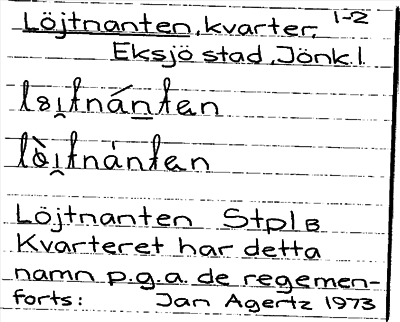 Löjtnanten, kvarter, 1-2
Eksjö stad, Jönk.l.
lɞi̯tnántan
lò̀i̯tnàntan
Löjtnanten Stpl B
Kvarteret har detta
namn p.g.a. de regemen-
forts: Jan Agertz 1973